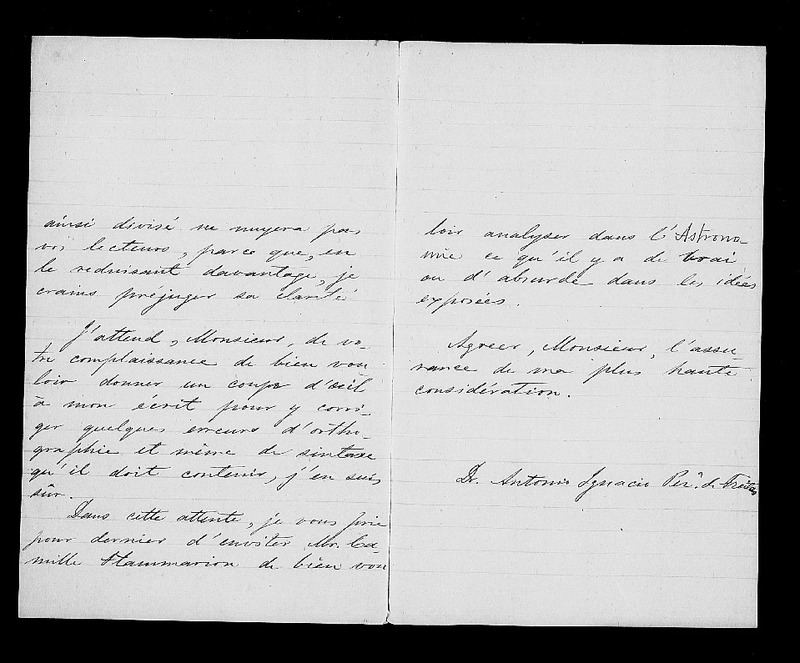 ainsi divisé ne nuyera pas
vos lecteurs, parce que, en
le reduisant davantage, je
crains préjuger sa clarté
J'attend, Monsieur, de vo-
tre complaissance de bien vou-
loir donner un coupr d'œil
à mon écrit pour y corri-
ger quelques erreurs d'ortho-
graphie et même de sintaxe
qu'il doit contenir, j'en suis
sûr.
Dans cette attente, je vous prie
pour dernier d'enviter Mr. Ca-
mille Flammarion de bien vou
loir analyser dans l'Astrono-
mie ce qu'il y a de vrai
ou d'absurde dans les idées
exposées.
Agreer, Monsieur, l'assu-
rance de ma plus haute
considération.
Dr. Antonio Ignacio Per.ª de Freitas